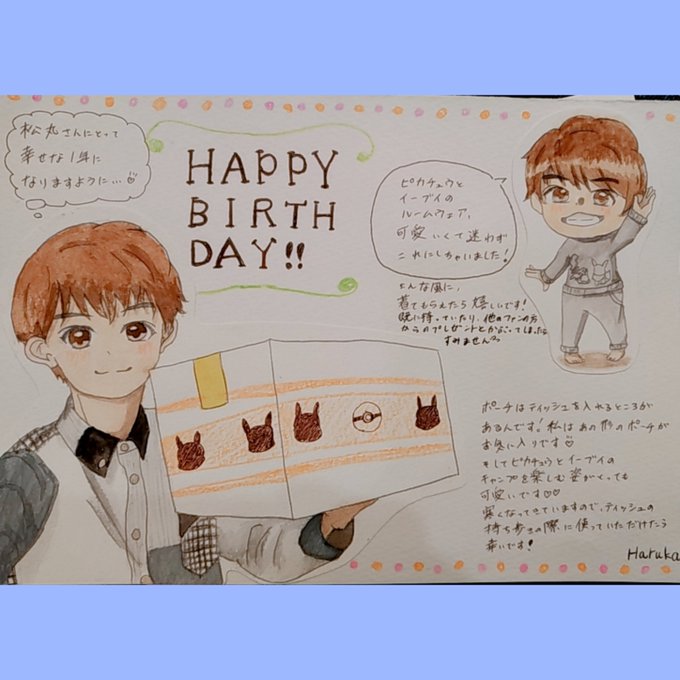 松丸さんにとって
幸せな1年に
なりますように…♡
HAPPY
BIRTH
DAY!!
ピカチュウと
イーブイの
ルームウェア、
可愛いくて迷わず
これにしちゃいました！
こんな風に、
着てもらえたら嬉しいです！
既に持っていたり、他のファンの方
からのプレゼントとかぶってしまったら
すみません
ポーチはティッシュを入れるところが
あるんです！私はあの形のポーチが
お気に入りです♡
そしてピカチュウとイーブイの
キャンプを楽しむ姿がとっても
可愛いです♡♡
寒くなってきていますので、ティッシュの
持ち歩きの際に使っていただけたら
幸いです！
Haruka